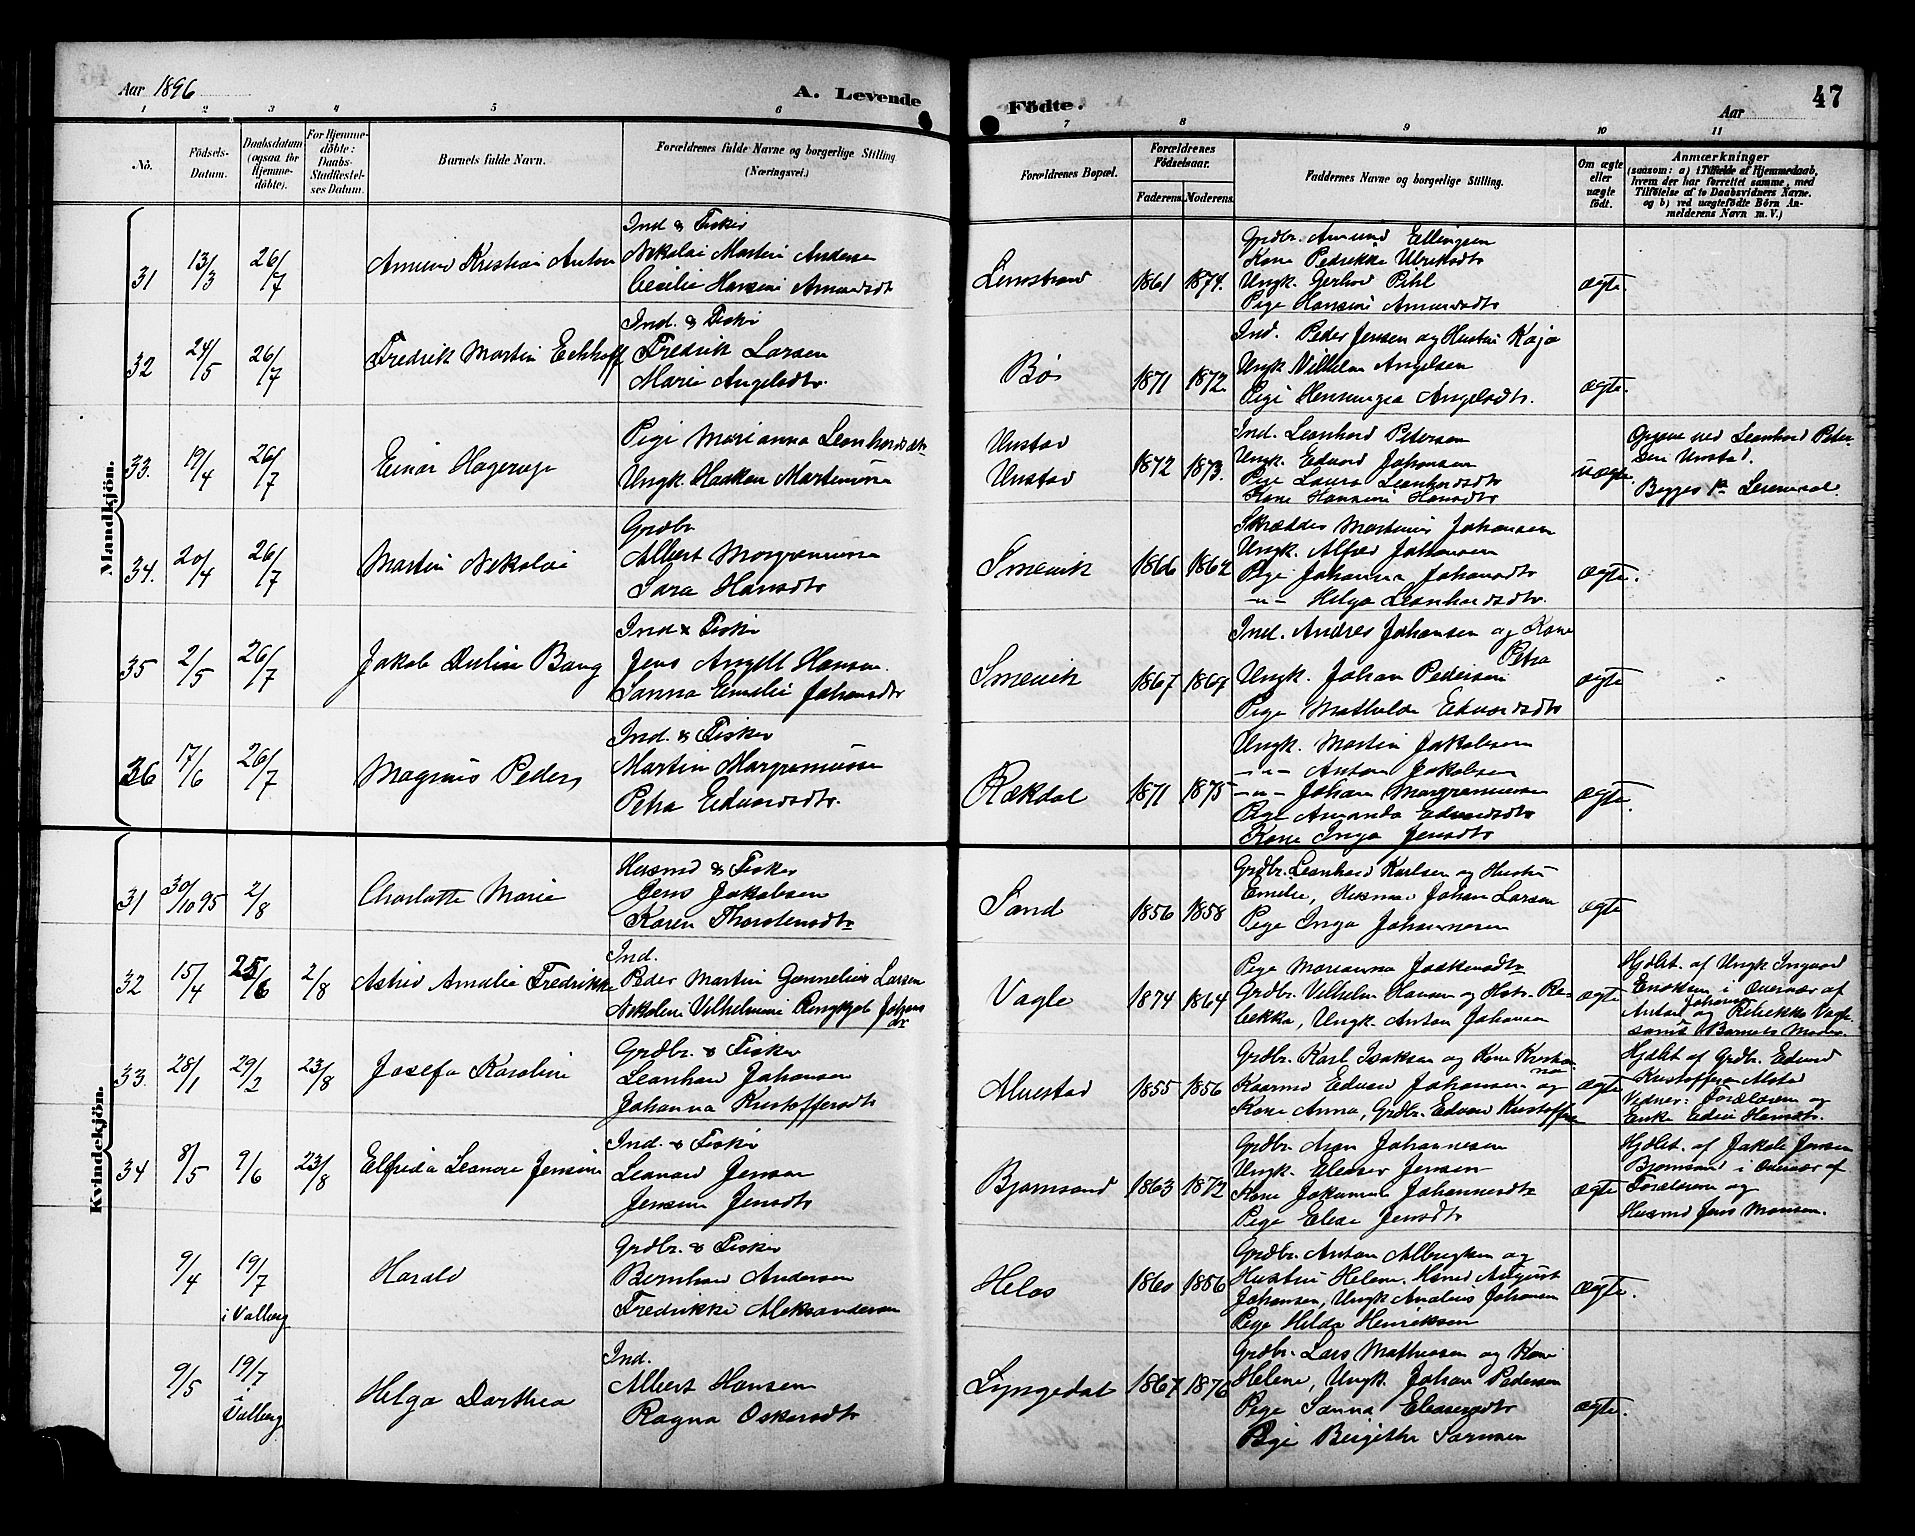 Aar 1896
A. Levende
Födte.
Aar
47
1 2 3 4 5 6 7 8 9 10 11
No.
Födsels-
Datum.
Daabsdatum
(ogsaa for
Hjemme-
döbte).
For Hjemme-
döbte:
Daabs-
Stadfæstel-
ses Datum.
Barnets fulde Navn.
Forældrenes fulde Navne og borgerlige Stilling
(Næringsvei.)
Forældrenes Bopæl.
Forældrenes
Födselsaar.
Faderens Moderens
Faddernes Navne og borgerlige Stilling.
Om ægte
eller
uægte
födt.
Anmærkninger
(saasom: a) i Tilfælde af Hjemmedaab,
hvem der har forrettet samme, med
Tilföielse af to Daabsvidners Navne.
og b) ved uægtefödte Börn An-
melderens Navn m. V.)
Mandkjön.
31 13/3 26/7 Amund Kristian Anton
Ind & Fisker
Nikolai Martin Andersen
Cecilie Hansine Amundsdtr
Lenostrand 1861 1874.
Grdbr. Amund Ellingsen
Kone Pedrikke Ulriksdtr
Ungk. Gerhard Pihl
Pige Hansine Amundsdtr
ægte.
32 24/5 26/7 Fredrik Martin Eckhoff
Ind. & Fisker
Fredrik Larsen
Marie Angelsdtr.
Bø 1871 1872
Ind. Peder Jensen og Hustru Kaja
Ungk Vilhelm Angelsen
Pige Henninga Angelsdtr.
ægte.
33. 19/4 26/7 Einar Hagerup
Pige Marianna Leonhardsdtr
Ungk. Haakon Martinussen
Unstad
Unstad
1872 1873.
Ind. Leonhard Petersen
Ungk. Edvard Johansen
Pige Laura Leonhardsdtr
Kone Hansine Hansdtr
uægte.
Opgave ved Leonhard Peter-
sen Unstad.
Begges 1ste Leiermaal.
34. 20/4 26/7 Martin Nikolai
Grdbr
Albert Margrenussen
Sara Hansdtr
Smevik 1866 1862
Skrædder Martinus Johansen
Ungk. Alfred Johansen
Pige Johanna Johansdtr
—"— Helga Leonhardsdtr.
ægte.
35 2/5 26/7 Jakob Dulin Bang
Ind & Fisker
Jens Angell Hansen.
Sanna Emelie Johansdtr
Smevik 1867 1869
Ind. Andreas Johansen og Kone
Petra
Ungk. Johan Pedersen
Pige Mathilde Edvardsdtr
ægte
36 17/6 26/7 Magnus Peder
Ind. & Fisker
Martin Margrenussen
Petra Edvardsdtr.
Rækdal 1871 1875
Ungk. Martin Jakobsen
—"— Anton Jakobsen
—"— Johan Margrenussen
Pige Amanda Edvardsdtr
Kone Inga Jensdtr
ægte.
Kvindekjön.
31 30/10 95 2/8 Charlotte Marie
Husmd & Fisker
Jens Jakobsen
Karen Thorstensdtr
Sand 1856 1858
Grdbr. Leonhard Karlsen og Hustru
Emelie, Husmd Johan Larsen
Pige Inga Johannesen
ægte
32 15/4 25/6 2/8 Astrid Amalie Fredrikke
Ind.
Peder Martin Gannelius Larsen
Nikoline Vilhelmine Ringkjøb Johans
dtr
Vagle 1874 1864
Pige Marianna Jaakensdtr
Grdbr. Vilhelm Hansen og Hstr. Re-
bekka, Ungk. Anton Johansen
ægte
Hjdbt. af Ungk Ingvard
Enoksen i Overvær af
Anton Johansen og Rebekka Vagle
samt Barnets Moder.
33. 28/1 29/2 23/8 Josefa Karoline
Grdbr. & Fisker
Leonhard Johansen
Johanna Kristoffersdtr
Alvestad 1855 1856
Grdbr. Karl Isaksen og Kone Kristian
na
Kaarmd Edvard Johansen og
Kone Anna, Grdbr. Edvard Kristoffersen
ægte
Hjdbt. af Grdbr. Edvard
Kristoffersen Alstad
Vidner: Forældrene og
Enke Edie Hansdtr.
34 8/5 9/6 23/8 Elfrida Leonore Jensine
Ind. & Fisker
Leonard Jensen
Jensine Jensdtr
Bjørnsand 1863 1872
Grdbr. Aron Johannesen
Ungk. Eleaser Jensen
Kone Jakumine Johannesdtr
Pige Elise Jensdtr
ægte
Hjdbt. af Jakob Jensen
Bjørnsand i Overvær af
Forældrene og
Husmd Jens Monsen.
9/4 19/7 i Valberg Harald
Grdbr. & Fisker
Bernhard Andersen
Fredrikke Aleksandersen
Helos 1860 1856
Grdbr. Anton Albrigtsen og
Hustru Helene. Husmd August
Johansen, Ungk Analius Johansen
Pige Hilda Henriksen
ægte.
9/5 19/7 i Valberg Helga Dorthea
Ind.
Albert Hansen
Ragna Oskarsdtr
Lyngedal 1867 1876
Grdbr. Lars Mathiesen og Kone
Helene, Ungk. Johan Pedersen
Pige Sanna Eleasersdtr
Pige Bergithe Sørensen
ægte.